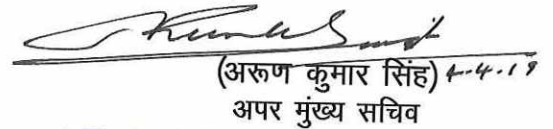 (अरूण कुमार सिंह) 4-4.19
अपर मुंख्य सचिव